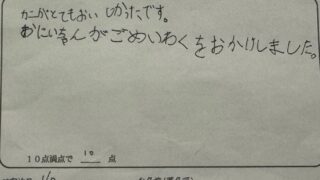 カニがとてもおいしかったです。
おにいちゃんがごめいわくをおかけしました。
10点満点で 10 点